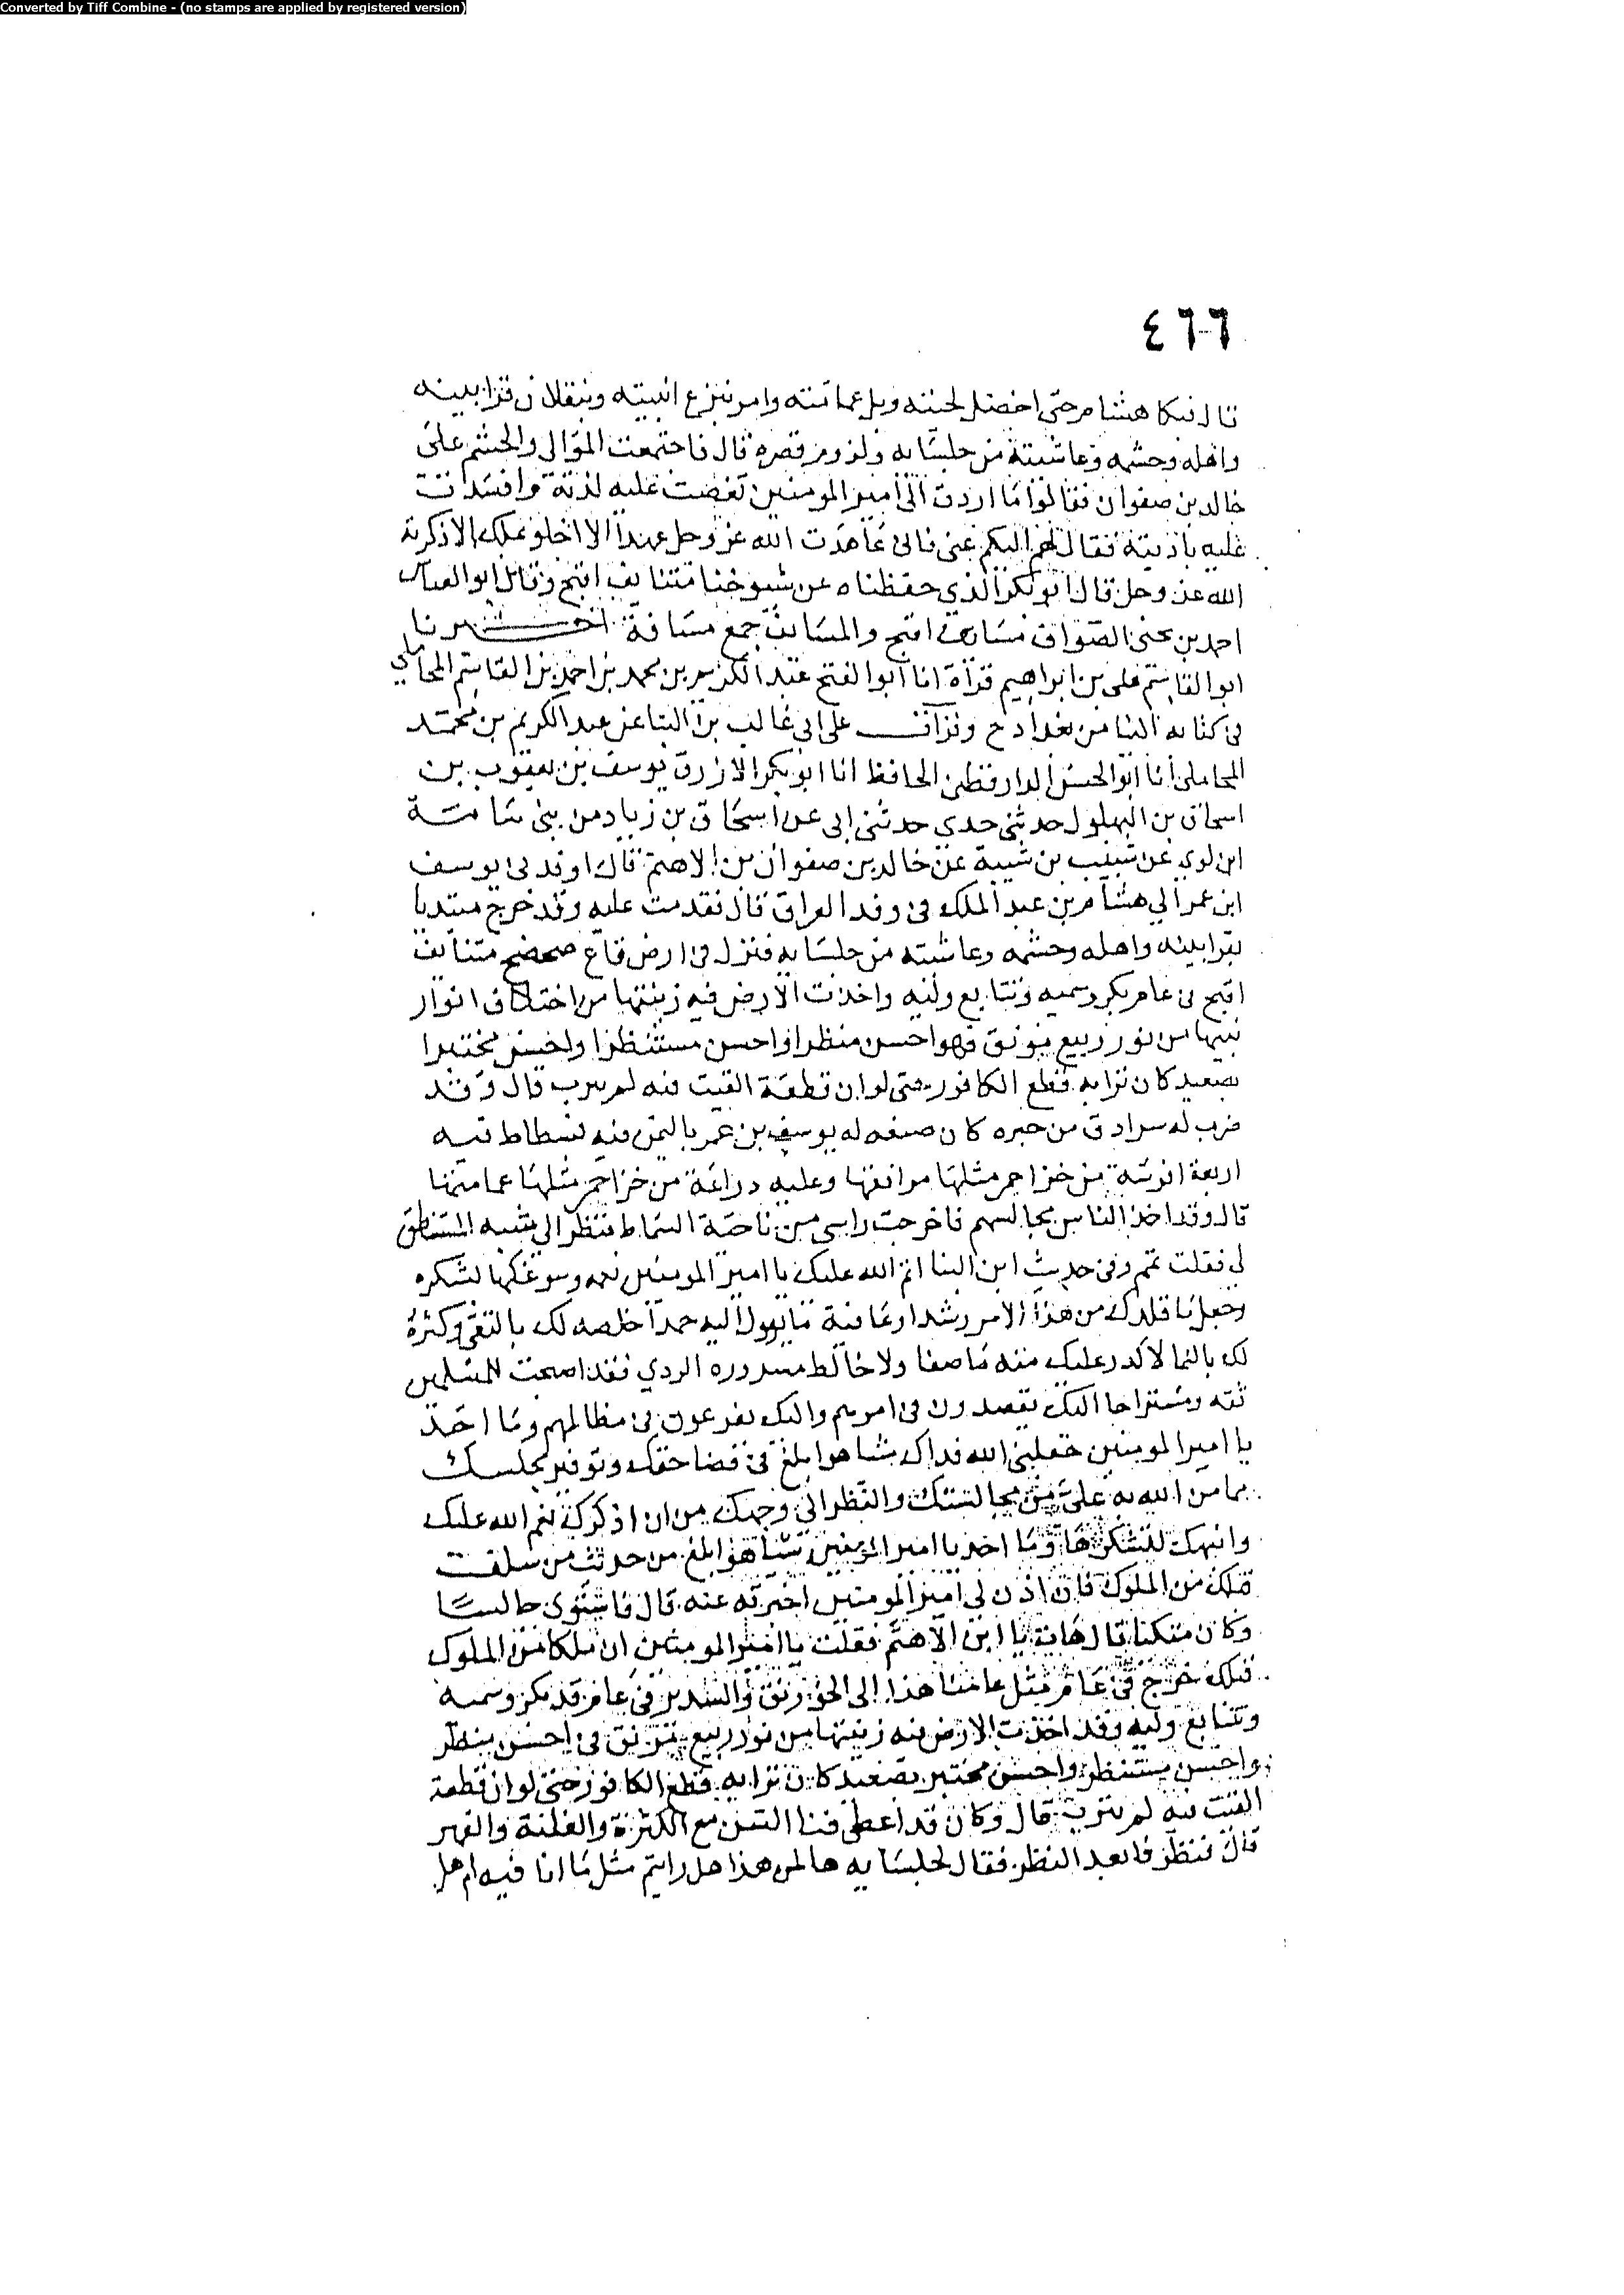 Converted by Tiff Combine - (no stamps are applied by registered version)
٤٦٦
قال فبكا هشام حتى اخضل لحيته وبل عمامته وامر بنزع ابنيته وبنقلان قرابينه
واهله وحشمه وغاشيته من جلسايه ولزوم قصره قال فاجتمعت الموالي والحشم على
خالد بن صفوان فقالوا ما اردت الى امير المومنين نغصت عليه لذته وافسدت
عليه باديته فقال لهم اليكم عني فاني عاهدت الله عز وجل عهدا الا اخلو بملك الا ذكرته
الله عز وجل قال ابو بكر الذي حفظناه عن شيوخنا متنايف افيح وقال ابو العباس
احمد بن يحيى الصواف مسايف افيح والمسايف جمع مسافة اخبرنا
ابو القاسم علي بن ابراهيم قراة انا ابو الفتح عبد الكريم بن محمد بن احمد بن القاسم المحاملي
في كتابه الينا من بغداد ح وقرات على ابي غالب بن البنا عن عبد الكريم بن محمد
المحاملي انا ابو الحسن الدارقطني الحافظ انا ابو بكر الازرق يوسف بن يعقوب بن
اسحاق بن البهلول حدثني جدي حدثني ابي عن اسحاق بن زياد من بني سامة
ابن لوي عن شبيب بن شيبة عن خالد بن صفوان بن الاهتم قال اوفدني يوسف
ابن عمر الي هشام بن عبد الملك في وفد العراق قال فقدمت عليه وقد خرج مبتديا
بقرابينه واهله وحشمه وغاشيته من جلسايه فنزل في ارض قاع صحصح متنايف
افيح في عام بكر وسميه وتتابع وليه واخذت الارض فيه زينتها من اختلاف انوار
نبتها من نور ربيع مونق فهو احسن منظرا واحسن مستنظرا واحسن مختبرا
بصعيد كان ترابه قطع الكافور حتى لو ان قطعة القيت فيه لم تترب قال وقد
ضرب له سرادق من حبره كان صنعه له يوسف بن عمر باليمن فيه فسطاط فيه
اربعة افرشة من خز احمر مثلها مرافقها وعليه دراعة من خز احمر مثلها عمامتها
قال وقد اخذ الناس مجالسهم فاخرجت راسي من ناحية السماط فنظر الي شبه المستنطق
لي فقلت تمم وفي حديث ابن البنا اتم الله عليك يا امير المومنين نعمه وسوغكها لشكره
وجعل ما قلدك من هذا الامر رشدا وعاقبة ما يوول اليه حمدا خلصه لك بالتقى وكثره
لك بالنما لا كدر عليك منه ما صفا ولا خالط مسروره الردي فقد اصبحت للمسلمين
ثقه ومستراحا اليك يقصدون في امورهم واليك يفزعون في مظالمهم وما اجد
يا امير المومنين جعلني الله فداك شيا هو ابلغ في قضا حقك وتوقير مجلسك
بما من الله به علي من مجالستك والنظر الي وجهك من ان اذكرك نعم الله عليك
وانبهك لشكرها وما اجد يا امير المومنين شيا هو ابلغ من حديث من سلف
قبلك من الملوك فان اذن لي امير المومنين اخبرته عنه قال فاستوى جالسا
وكان متكيا قال هاته يا ابن الاهتم فقلت يا امير المومنين ان ملكا من الملوك
قبلك خرج في عام مثل عامنا هذا الى الخورنق والسدير في عام قد بكر وسميه
وتتابع وليه وقد اخذت الارض فيه زينتها من نور ربيع مونق في احسن منظر
واحسن مستنظر واحسن مختبر بصعيد كان ترابه قطع الكافور حتى لو ان قطعة
القيت فيه لم تترب قال وكان قد اعطي فتا السن مع الكثرة والغلبة والقهر
قال فنظر فابعد النظر فقال لجلسايه هالمن هذا هل رايتم مثل ما انا فيه ام هل